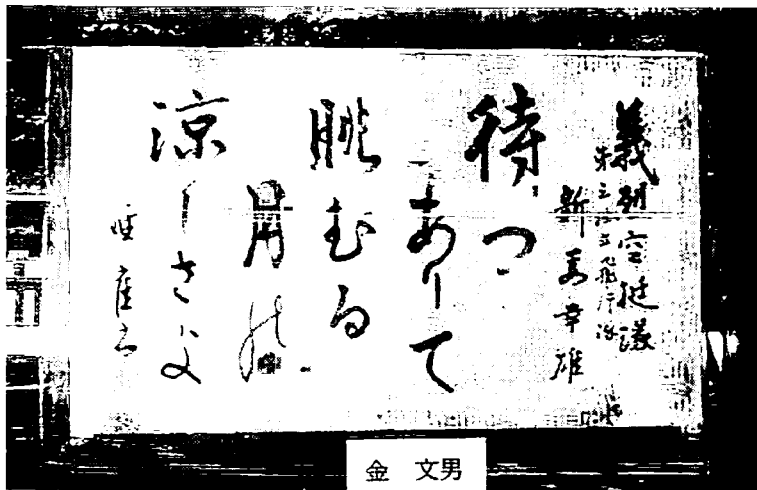 義烈空挺隊
第三独立飛行隊
新妻幸雄
待つ
ありて
眺むる
月の
涼しさよ
金 文男